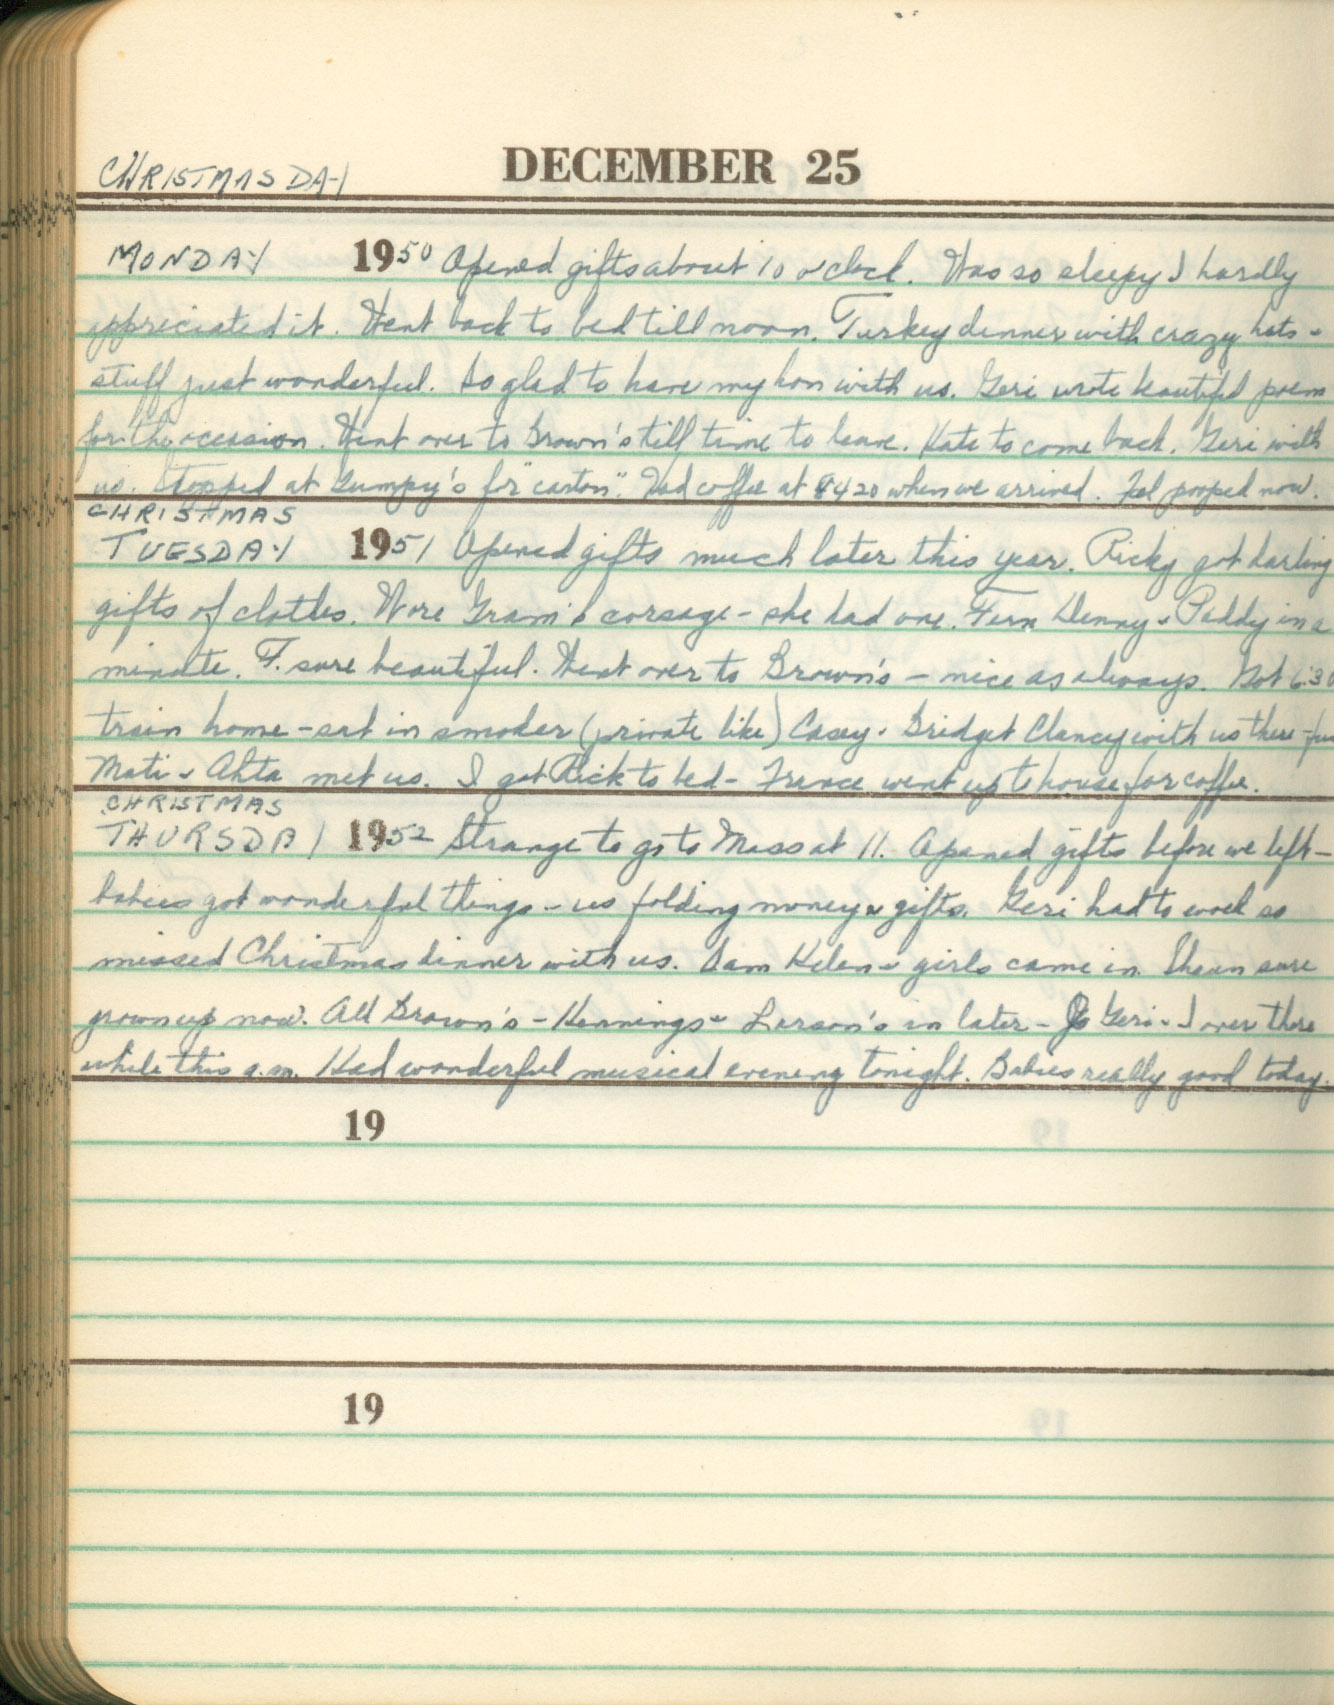 CHRISTMAS DAY
DECEMBER 25
MONDAY 1950 Opened gifts about 10 o'clock. Was so sleepy I hardly
appreciated it. Went back to bed till noon. Turkey dinner with crazy hats -
stuff just wonderful. So glad to have my hon with us. Geri wrote beautiful poem
for the occasion. Went over to Brown's till time to leave. Hate to come back. Geri with
us. Stopped at Gumpy's for "carton". Had coffee at 420 when we arrived. Feel pooped now.
CHRISTMAS
TUESDAY 1951 Opened gifts much later this year. Ricky got darling
gifts of clothes. Wore Gram's corsage - she had one. Fern Denny & Paddy in a
minute. F. sure beautiful. Went over to Brown's - nice as always. Got 6:30
train home - sat in smoker (private like) Casey & Bridget Clancy with us there -
Mati & Ahta met us. I got Rick to bed - France went up to house for coffee.
CHRISTMAS
THURSDAY 1952 Strange to go to Mass at 11. Opened gifts before we left -
babies got wonderful things - us folding money & gifts. Geri had to work so
missed Christmas dinner with us. Sam Helen & girls came in. sure
grown up now. All Brown's - Hennings & Larson's in later - Jo Geri & I over there
while this a.m. Had wonderful musical evening tonight. Babies really good today.
19
19